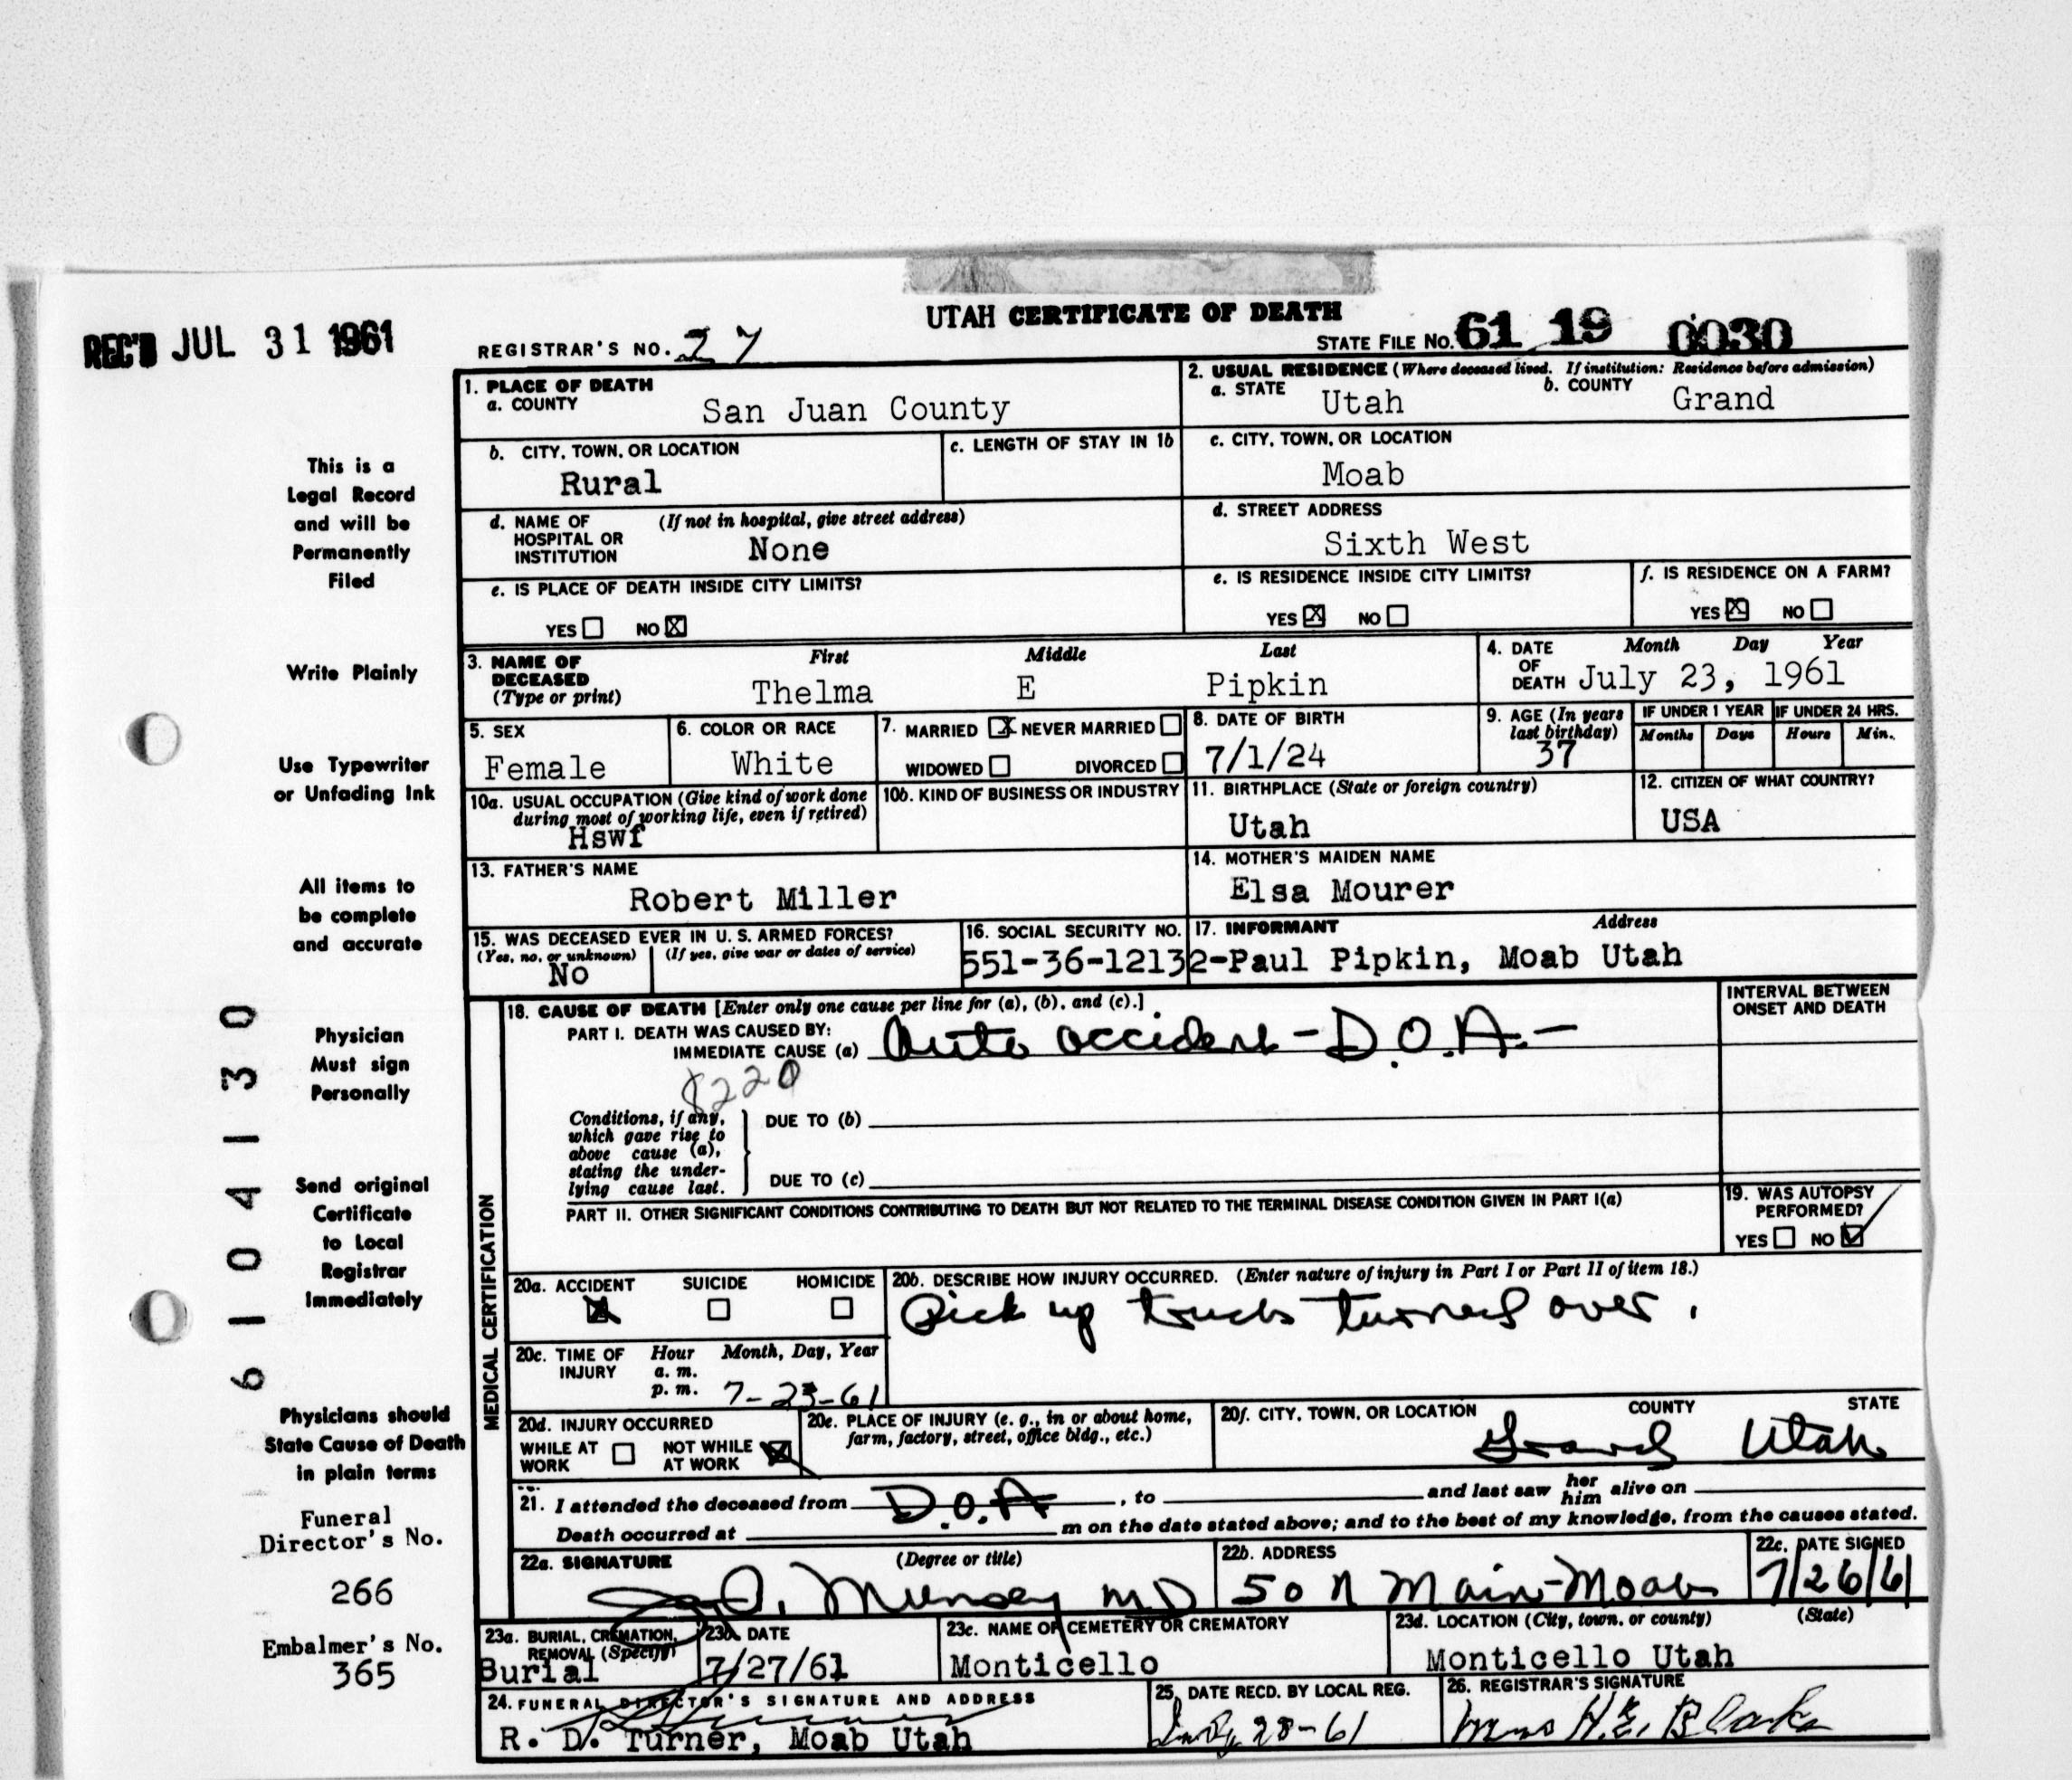 UTAH CERTIFICATE OF DEATH
REC'D JUL 31 1961
REGISTRAR'S NO. 27
STATE FILE NO. 61 19 0030
1. PLACE OF DEATH
a. COUNTY San Juan County
2. USUAL RESIDENCE (Where deceased lived. If institution: Residence before admission)
a. STATE Utah b. COUNTY Grand
b. CITY, TOWN, OR LOCATION
Rural
c. LENGTH OF STAY IN 1b
c. CITY, TOWN, OR LOCATION
Moab
d. NAME OF HOSPITAL OR INSTITUTION (If not in hospital, give street address)
None
d. STREET ADDRESS
Sixth West
e. IS PLACE OF DEATH INSIDE CITY LIMITS?
YES ☐ NO ☒
e. IS RESIDENCE INSIDE CITY LIMITS?
YES ☒ NO ☐
f. IS RESIDENCE ON A FARM?
YES ☒ NO ☐
3. NAME OF DECEASED (Type or print)
First Middle Last
Thelma E Pipkin
4. DATE OF DEATH Month Day Year
July 23, 1961
5. SEX
Female
6. COLOR OR RACE
White
7. MARRIED ☒ NEVER MARRIED ☐
WIDOWED ☐ DIVORCED ☐
8. DATE OF BIRTH
7/1/24
9. AGE (In years last birthday)
37
IF UNDER 1 YEAR
Months Days
IF UNDER 24 HRS.
Hours Min.
10a. USUAL OCCUPATION (Give kind of work done during most of working life, even if retired)
Hswf
10b. KIND OF BUSINESS OR INDUSTRY
11. BIRTHPLACE (State or foreign country)
Utah
12. CITIZEN OF WHAT COUNTRY?
USA
13. FATHER'S NAME
Robert Miller
14. MOTHER'S MAIDEN NAME
Elsa Mourer
15. WAS DECEASED EVER IN U. S. ARMED FORCES?
(Yes, no, or unknown) (If yes, give war or dates of service)
No
16. SOCIAL SECURITY NO.
551-36-1213
17. INFORMANT Address
2-Paul Pipkin, Moab Utah
MEDICAL CERTIFICATION
18. CAUSE OF DEATH [Enter only one cause per line for (a), (b), and (c).]
INTERVAL BETWEEN ONSET AND DEATH
PART I. DEATH WAS CAUSED BY:
IMMEDIATE CAUSE (a) Auto accident - D.O.A. -
8220
Conditions, if any, which gave rise to above cause (a), stating the underlying cause last.
DUE TO (b)
DUE TO (c)
PART II. OTHER SIGNIFICANT CONDITIONS CONTRIBUTING TO DEATH BUT NOT RELATED TO THE TERMINAL DISEASE CONDITION GIVEN IN PART I(a)
19. WAS AUTOPSY PERFORMED?
YES ☐ NO ☑
20a. ACCIDENT SUICIDE HOMICIDE
☒ ☐ ☐
20b. DESCRIBE HOW INJURY OCCURRED. (Enter nature of injury in Part I or Part II of item 18.)
Pick up truck turned over.
20c. TIME OF INJURY
Hour Month, Day, Year
a. m.
p. m. 7-23-61
20d. INJURY OCCURRED
WHILE AT WORK ☐ NOT WHILE AT WORK ☒
20e. PLACE OF INJURY (e. g., in or about home, farm, factory, street, office bldg., etc.)
20f. CITY, TOWN, OR LOCATION COUNTY STATE
Grand Utah
21. I attended the deceased from D.O.A , to and last saw her him alive on
Death occurred at m on the date stated above; and to the best of my knowledge, from the causes stated.
22a. SIGNATURE (Degree or title)
Munsey MD
22b. ADDRESS
50 N Main-Moab
22c. DATE SIGNED
7/26/61
23a. BURIAL, CREMATION, REMOVAL (Specify)
Burial
23b. DATE
7/27/61
23c. NAME OF CEMETERY OR CREMATORY
Monticello
23d. LOCATION (City, town, or county) (State)
Monticello Utah
24. FUNERAL DIRECTOR'S SIGNATURE AND ADDRESS
R. D. Turner, Moab Utah
25. DATE RECD. BY LOCAL REG.
July 28-61
26. REGISTRAR'S SIGNATURE
Mrs H.E. Blake
This is a
Legal Record
and will be
Permanently
Filed
Write Plainly
Use Typewriter
or Unfading Ink
All items to
be complete
and accurate
Physician
Must sign
Personally
Send original
Certificate
to Local
Registrar
Immediately
Physicians should
State Cause of Death
in plain terms
Funeral
Director's No.
266
Embalmer's No.
365
6104130